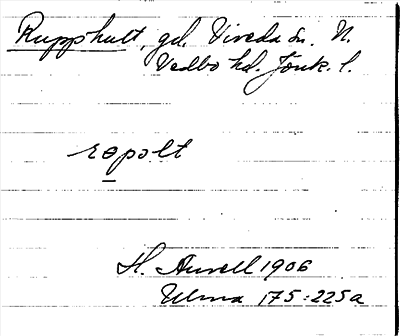 Rupphult, gd. Vireda sn. N.
Vedbo hd. Jönk. l.
rɵpolt
H. Anrell 1906
Ulma 175:225a